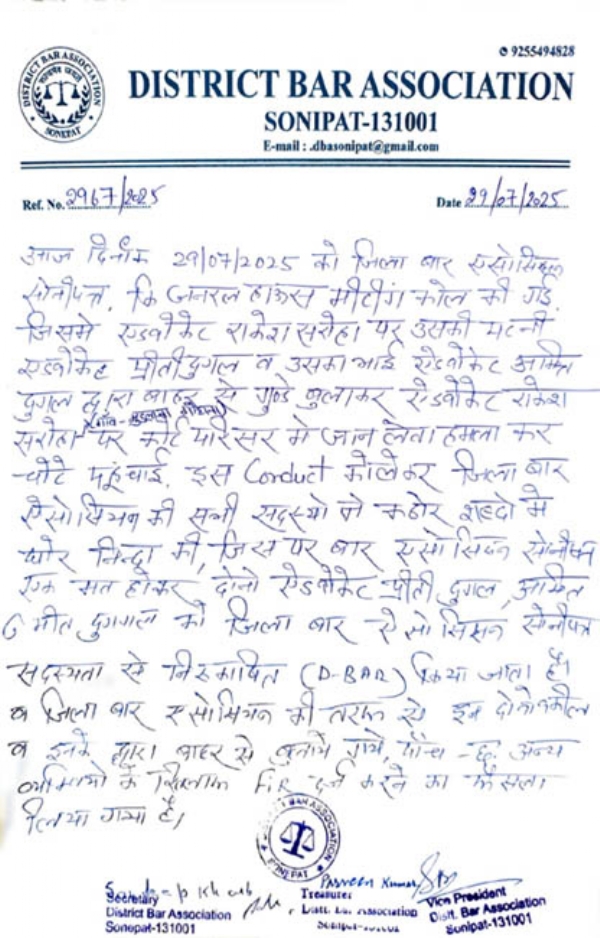 DISTRICT BAR ASSOCIATION
SONEPAT
9255494828
DISTRICT BAR ASSOCIATION
SONIPAT-131001
E-mail : .dbasonipat@gmail.com
Ref. No. 2967/2025 Date 29/07/2025
आज दिनांक 29/07/2025 को जिला बार एसोसिएशन
सोनीपत, कि जनरल हाऊस मीटींग कोल की गई
जिसमे एडवोकेट राकेश सरोहा पर उसकी पत्नी
एडवोकेट प्रीती दुगल व उसका भाई ऐडवोकेट अमित
दुगल द्वारा बाहर से गुण्डे बुलाकर ऐडवोकेट राकेश
सरोहा पर कोर्ट परिसर मे जान लेवा हमला कर
चोटे पहूंचाई. इस Conduct को लेकर जिला बार
ऐसोसियन की सभी सदस्यो ने कठोर शब्दो मे
घोर निन्दा की, जिस पर बार एसोसिएशन सोनीपत
एक मत होकर दोनो ऐडवोकेट प्रीती दुगल, अमित
दुगगल को जिला बार ऐसोसिसन सोनीपत
सदस्यता से निष्कासित (D-BAR) किया जाता है।
व जिला बार एसोसियन की तरफ से इन दोनो वकील
व इनके द्वारा बाहर से बुलाये गये, पाँच - छः अन्य
के खिलाफ FIR दर्ज करने का फैसला
लिया गया है।
DISTRICT BAR ASSOCIATION
SONEPAT
Parveen Kumar
Secretary
District Bar Association
Sonepat-131001
Treasurer
Distt. Bar Association
Vice President
Distt. Bar Association
Sonipat-131001